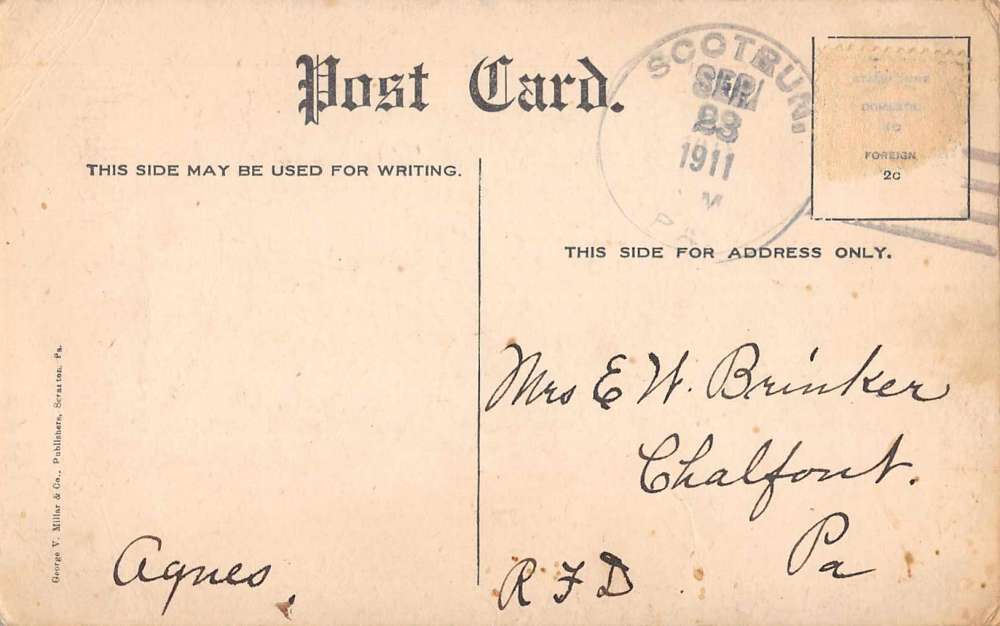 Post Card.
SCOTRUN.
SEP
23
1911
M
PA
DOMESTIC
1C
FOREIGN
2C
THIS SIDE MAY BE USED FOR WRITING.
THIS SIDE FOR ADDRESS ONLY.
George V. Millar & Co., Publishers, Scranton, Pa.
Mrs E W. Brinker
Chalfont.
Pa
R F D
Agnes.